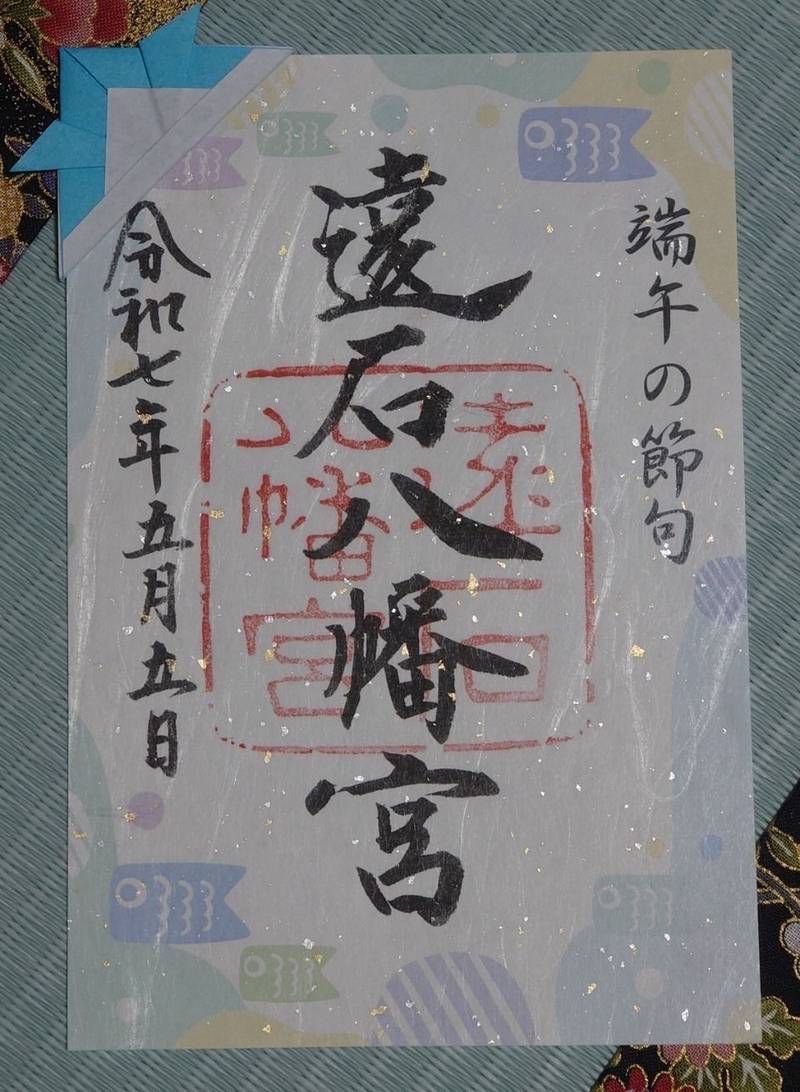 端午の節句
遠石八幡宮
令和七年五月五日
遠石
八幡宮